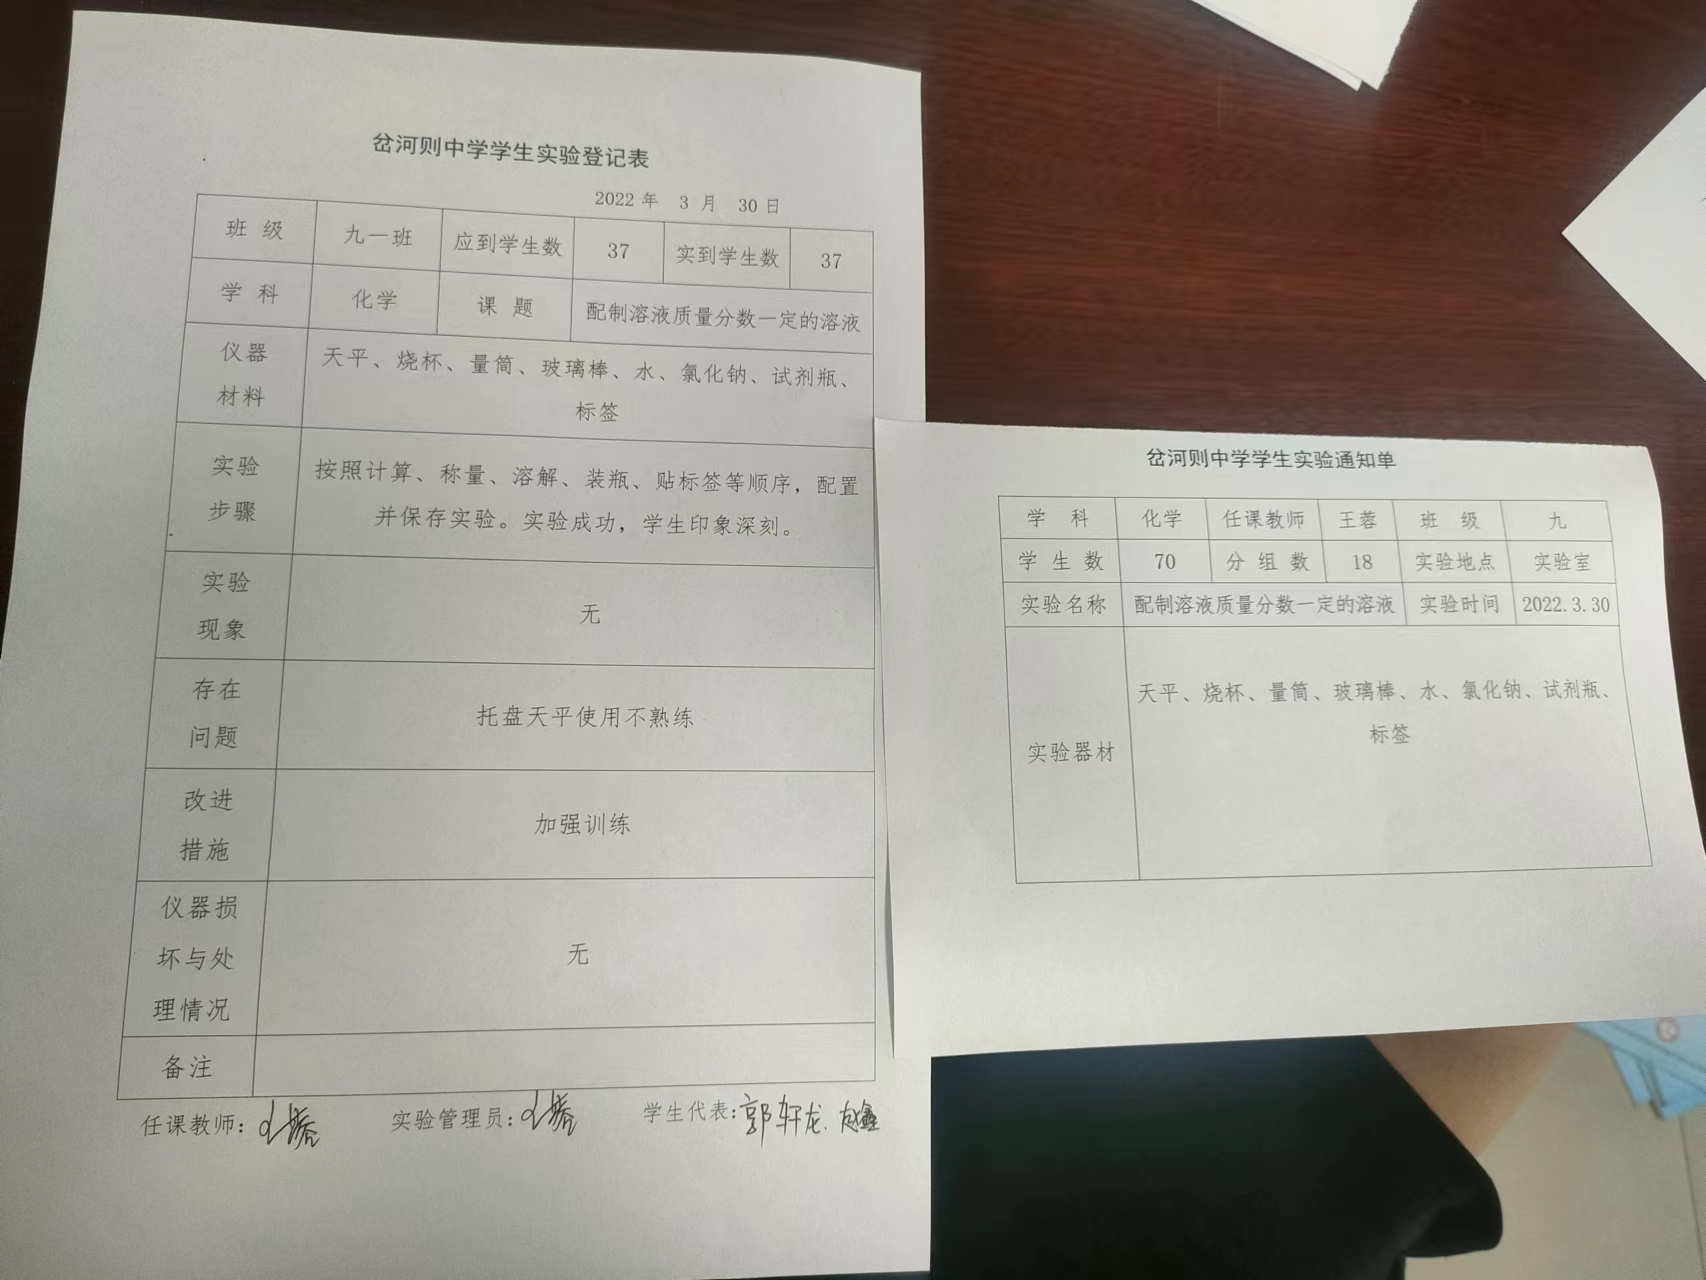 岔河则中学学生实验登记表
2022 年 3 月 30 日
班 级 九一班 应到学生数 37 实到学生数 37
学 科 化学 课 题 配制溶液质量分数一定的溶液
仪器
材料
天平、烧杯、量筒、玻璃棒、水、氯化钠、试剂瓶、
标签
实验
步骤
按照计算、称量、溶解、装瓶、贴标签等顺序，配置
并保存实验。实验成功，学生印象深刻。
实验
现象
无
存在
问题
托盘天平使用不熟练
改进
措施
加强训练
仪器损
坏与处
理情况
无
备注
任课教师： 实验管理员： 学生代表：郭轩龙.
岔河则中学学生实验通知单
学 科 化学 任课教师 王蓉 班 级 九
学 生 数 70 分 组 数 18 实验地点 实验室
实验名称 配制溶液质量分数一定的溶液 实验时间 2022.3.30
实验器材
天平、烧杯、量筒、玻璃棒、水、氯化钠、试剂瓶、
标签